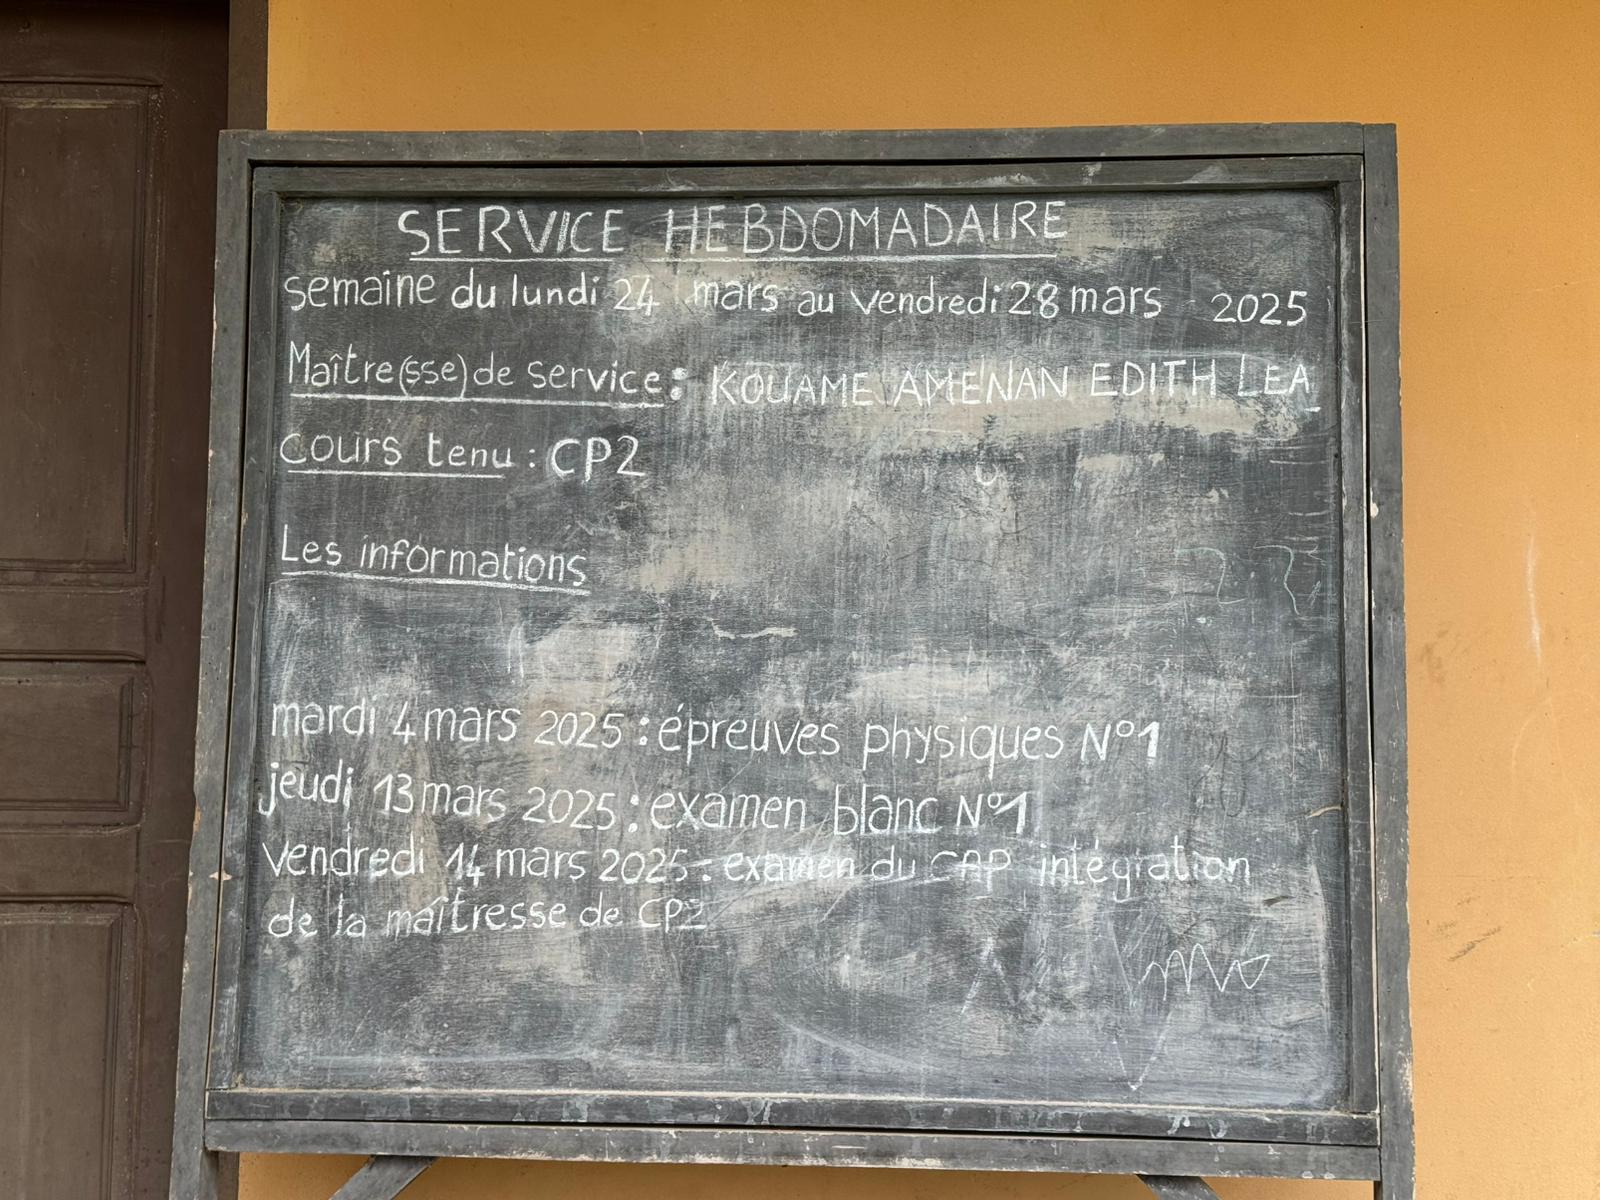 SERVICE HEBDOMADAIRE
semaine du lundi 24 mars au vendredi 28 mars 2025
Maître(sse) de service : KOUAME AMENAN EDITH LEA
Cours tenu : CP2
Les informations
mardi 4 mars 2025 : épreuves physiques N°1
jeudi 13 mars 2025 : examen blanc N°1
vendredi 14 mars 2025 : examen du CAP intégration
de la maîtresse de CP2